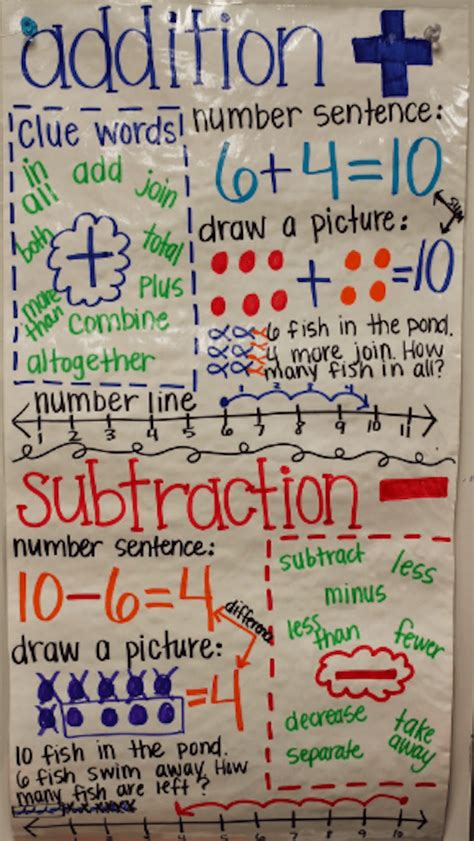 addition +
clue words
in all
add
join
both
+
total
plus
more than
combine
altogether
number sentence:
6+4=10
sum
draw a picture:
+ =10
6 fish in the pond.
4 more join. How
many fish in all?
number line
1 2 3 4 5 6 7 8 9 10 11
subtraction −
number sentence:
10-6=4
difference
draw a picture:
=4
10 fish in the pond.
6 fish swim away. How
many fish are left?
subtract
less
minus
less than
fewer
−
decrease
take away
separate